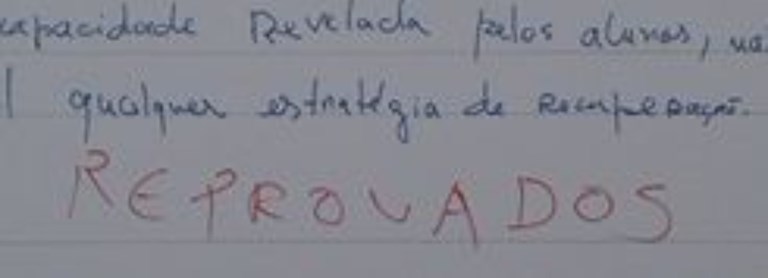 capacidade revelada pelos alunos, na
qualquer estratégia de recuperação.
REPROVADOS